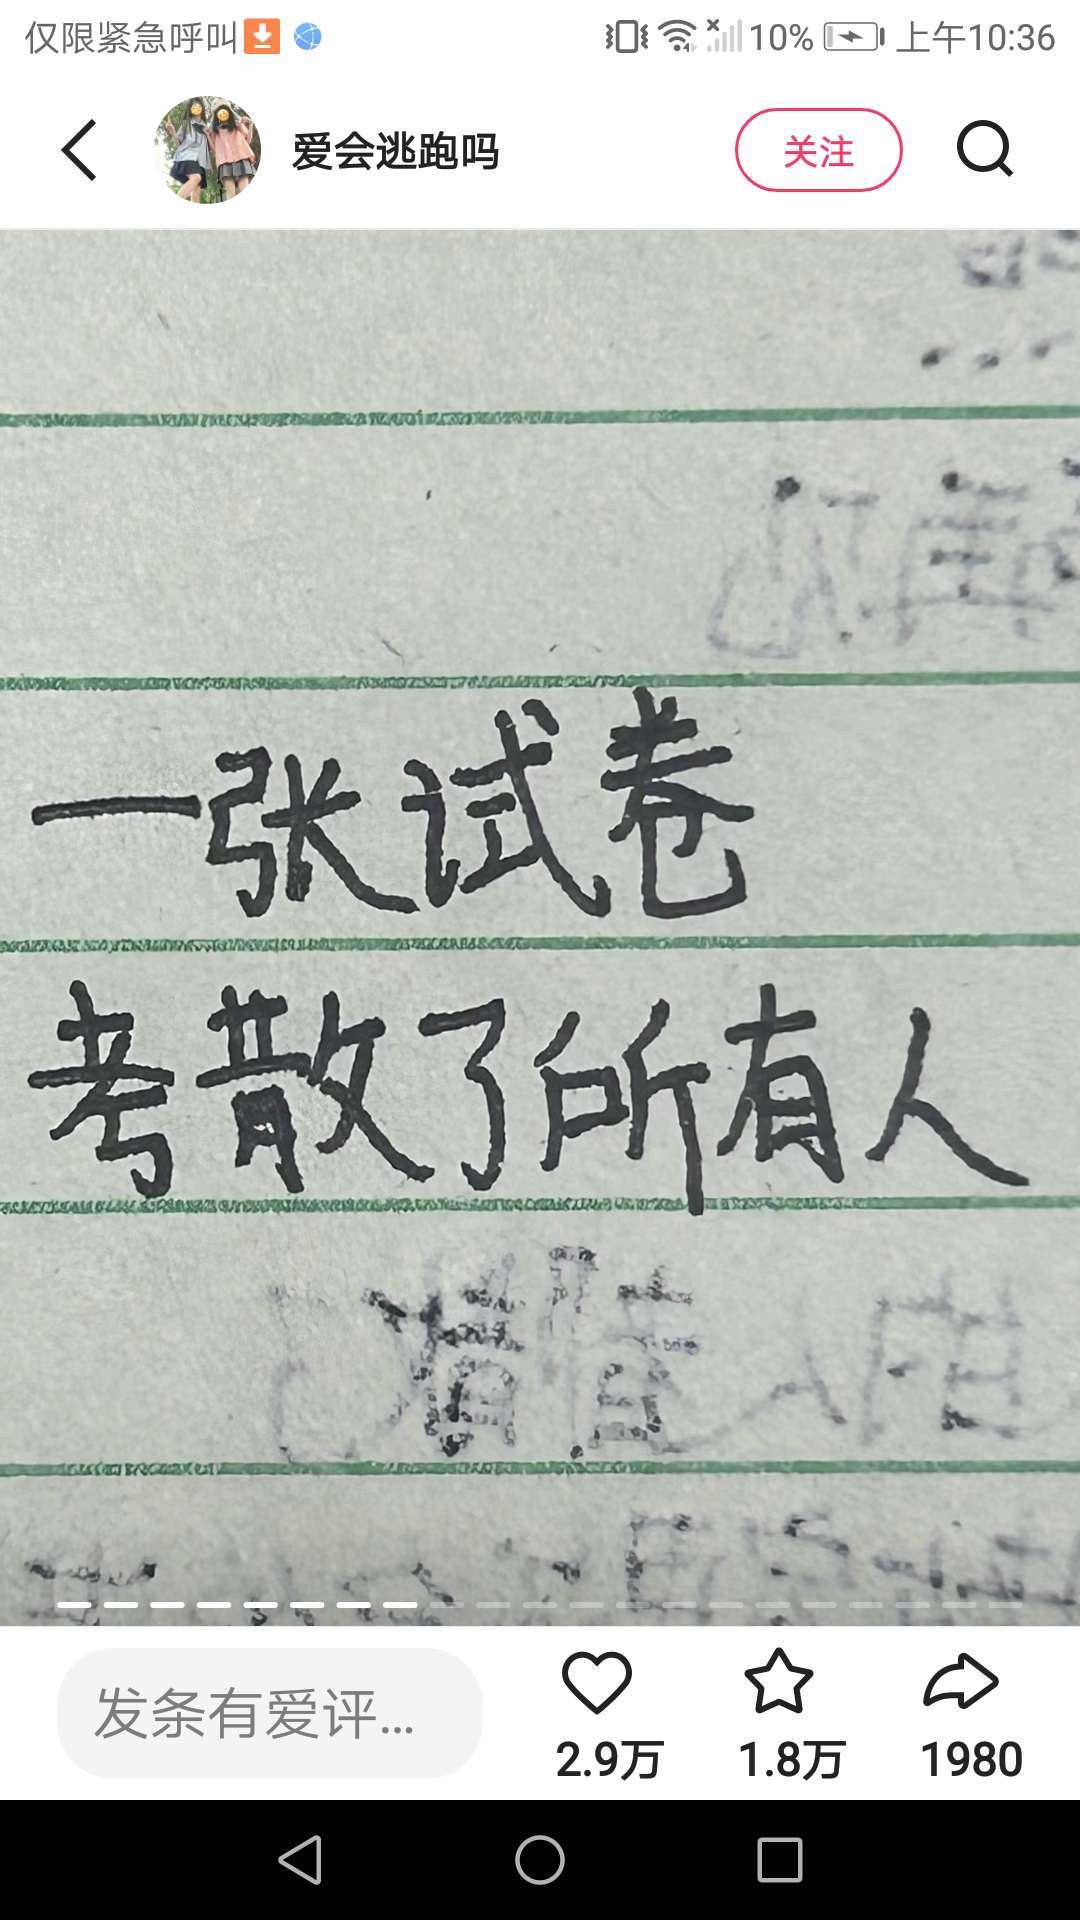 仅限紧急呼叫
10%
上午10:36
爱会逃跑吗
关注
一张试卷
考散了所有人
发条有爱评...
2.9万
1.8万
1980